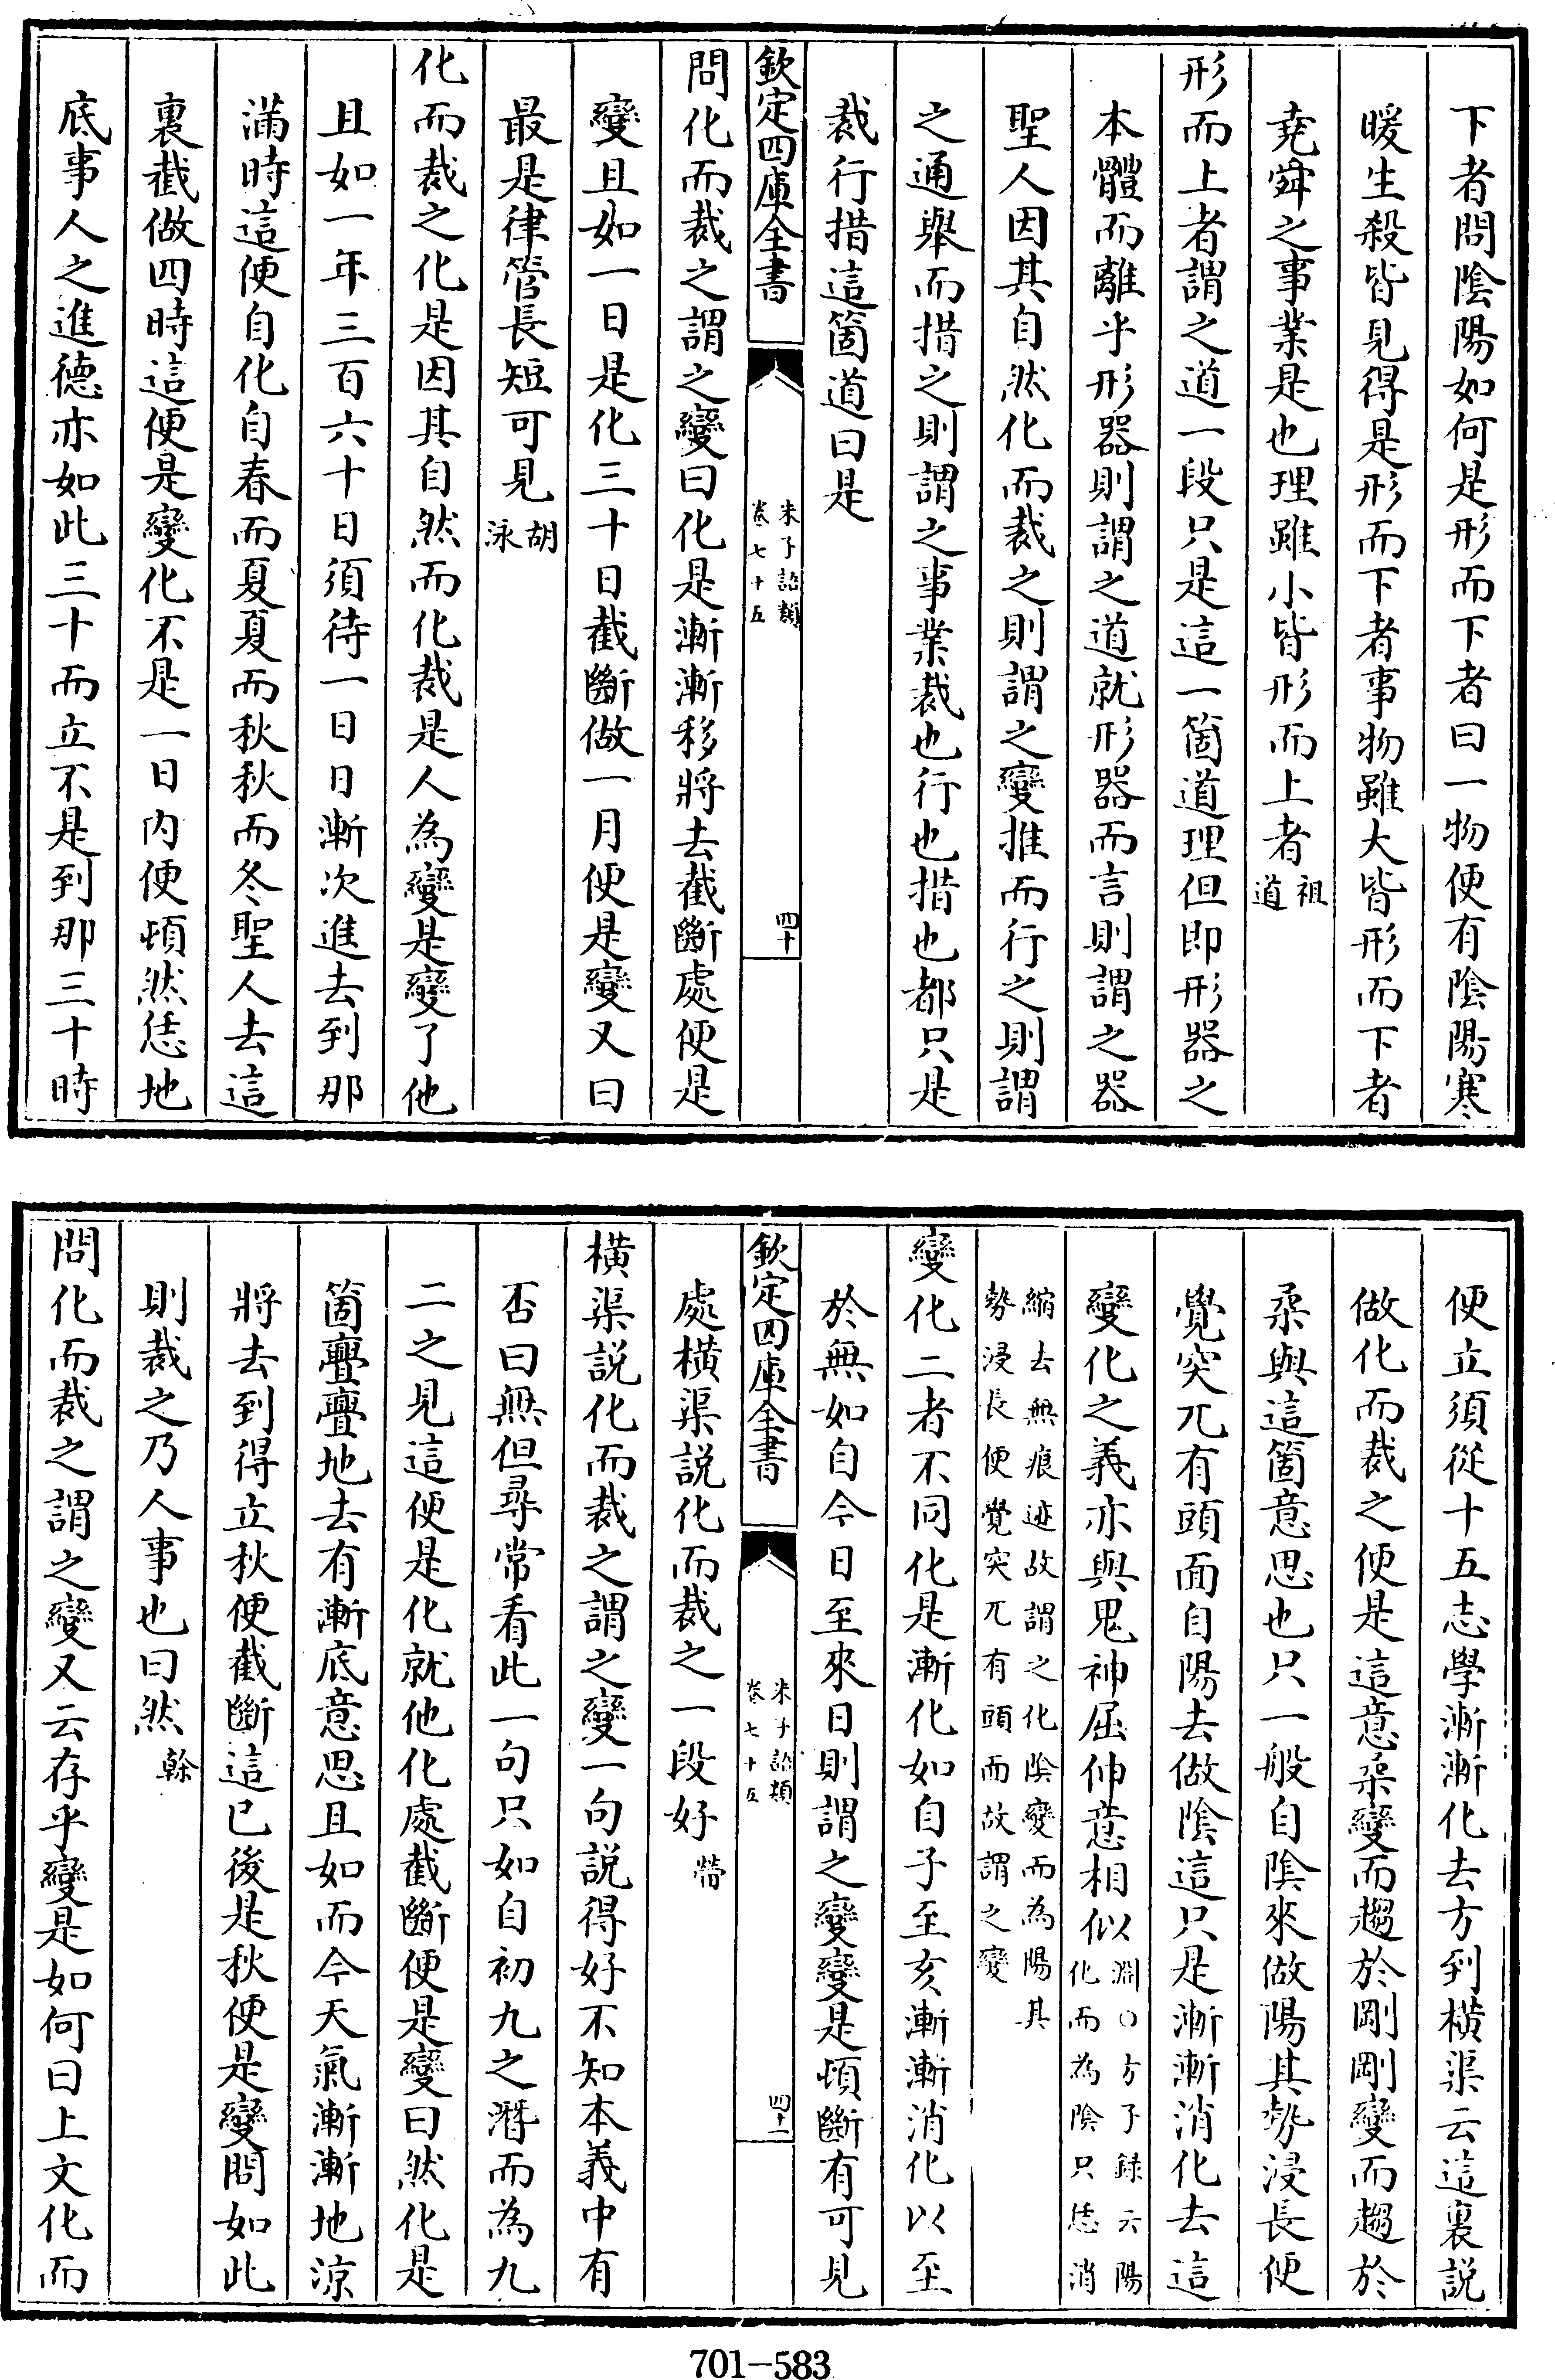 下者問陰陽如何是形而下者曰一物便有陰陽寒
暖生殺皆見得是形而下者事物雖大皆形而下者
堯舜之事業是也理雖小皆形而上者祖道
形而上者謂之道一段只是這一箇道理但即形器之
本體而離乎形器則謂之道就形器而言則謂之器
聖人因其自然化而裁之則謂之變推而行之則謂
之通舉而措之則謂之事業裁也行也措也都只是
裁行措這箇道曰是
欽定四庫全書
朱子語類
卷七十五
四十
問化而裁之謂之變曰化是漸漸移將去截斷處便是
變且如一日是化三十日截斷做一月便是變又曰
最是律管長短可見胡泳
化而裁之化是因其自然而化裁是人為變是變了他
且如一年三百六十日須待一日日漸次進去到那
滿時這便自化自春而夏夏而秋秋而冬聖人去這
裏截做四時這便是變化不是一日內便頓然恁地
底事人之進德亦如此三十而立不是到那三十時
便立須從十五志學漸漸化去方到橫渠云這裏說
做化而裁之便是這意柔變而趨於剛剛變而趨於
柔與這箇意思也只一般自陰來做陽其勢浸長便
覺突兀有頭面自陽去做陰這只是漸漸消化去這
變化之義亦與鬼神屈伸意相似淵○方子録云陽化而為陰只恁消
縮去無痕迹故謂之化陰變而為陽其勢浸長便覺突兀有頭面故謂之變
變化二者不同化是漸化如自子至亥漸漸消化以至
於無如自今日至來日則謂之變變是頓斷有可見
欽定四庫全書
朱子語類
卷七十五
四十一
處橫渠説化而裁之一段好㽦
橫渠説化而裁之謂之變一句説得好不知本義中有
否曰無但尋常看此一句只如自初九之潛而為九
二之見這便是化就他化處截斷便是變曰然化是
箇亹亹地去有漸底意思且如而今天氣漸漸地涼
將去到得立秋便截斷這已後是秋便是變問如此
則裁之乃人事也曰然榦
問化而裁之謂之變又云存乎變是如何曰上文化而
701-583